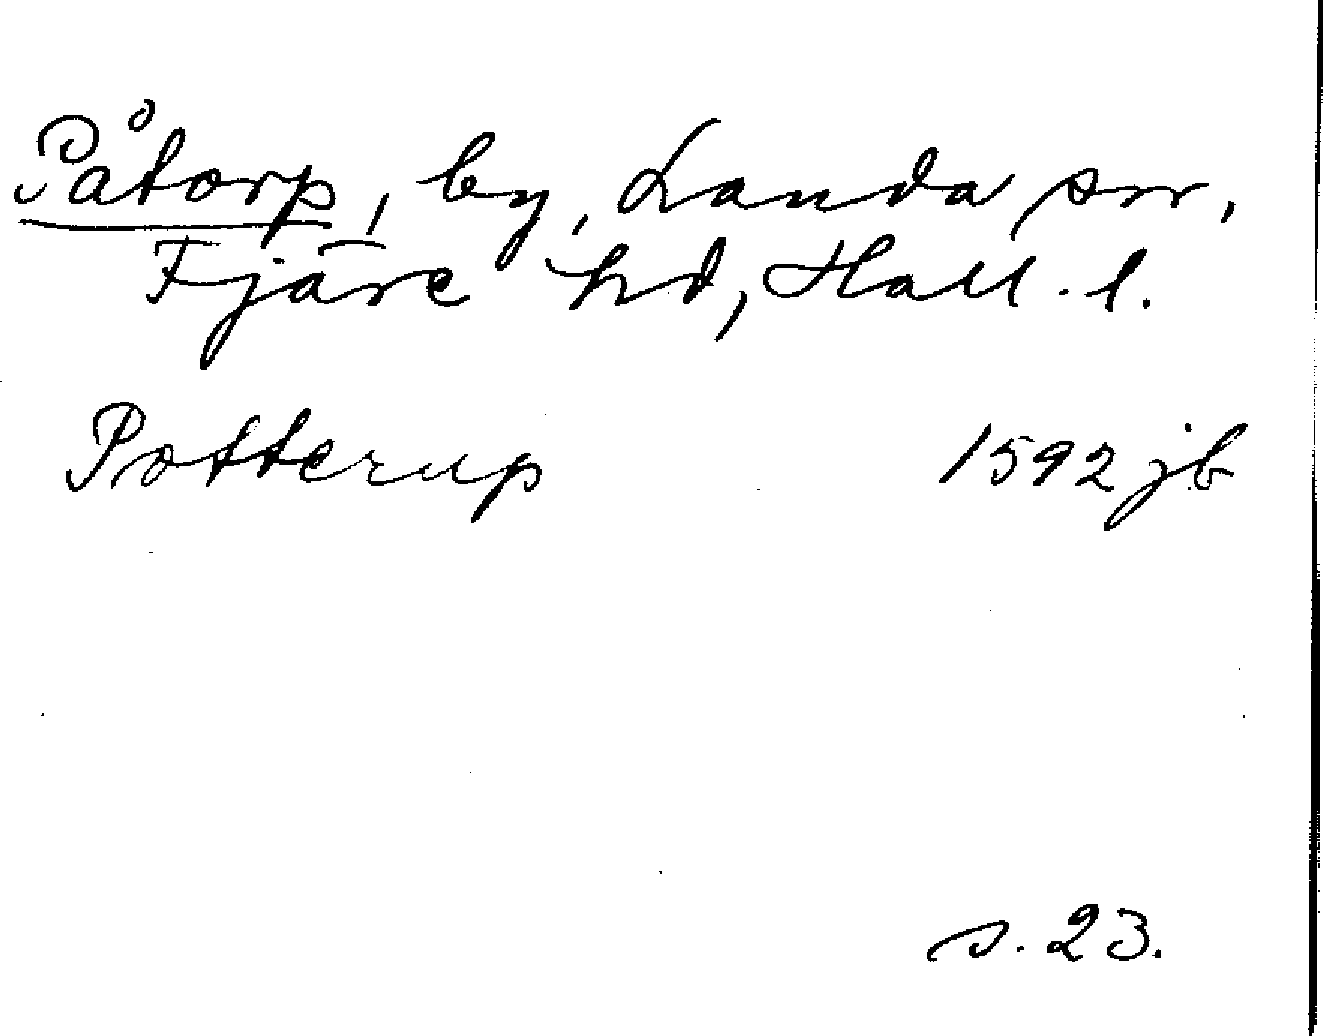 Påtorp, by, Landa sn,
Fjäre hd, Hall. l.
Potterup 1592 jb
s. 23.